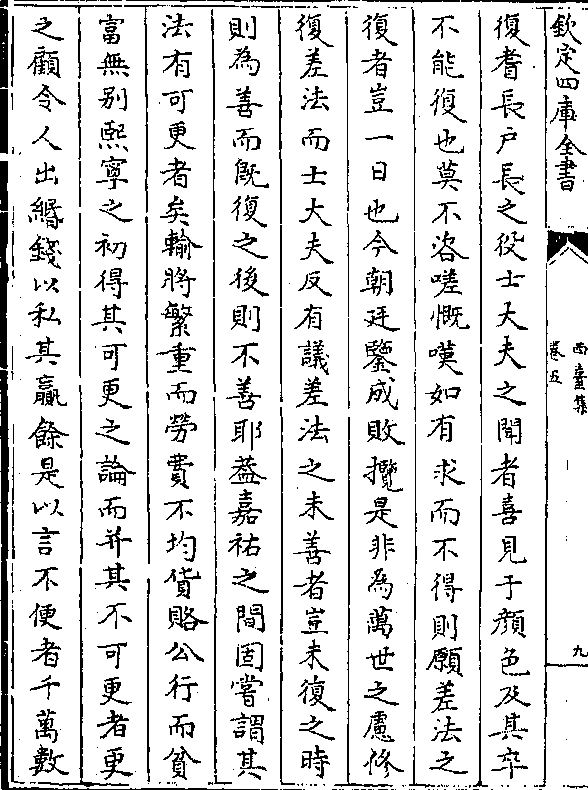 欽定四庫全書
西臺集
卷五
九
復耆長戶長之役士大夫之聞者喜見于顔色及其卒
不能復也莫不咨嗟慨嘆如有求而不得則願差法之
復者豈一日也今朝廷鑒成敗攬是非為萬世之慮修
復差法而士大夫反有議差法之未善者豈未復之時
則為善而既復之後則不善耶葢嘉祐之間固嘗謂其
法有可更者矣輸將繁重而勞費不均貨賂公行而貧
富無别熙寧之初得其可更之論而并其不可更者更
之顧令人出緡錢以私其贏餘是以言不便者千萬數